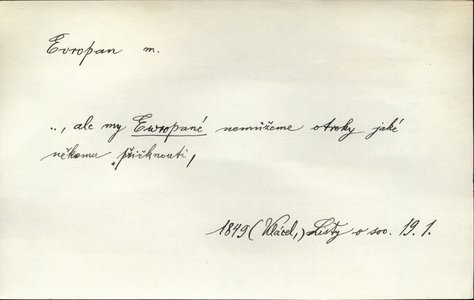 Evropan m.
.., ale my Ewropané nemůžeme otroky jaké
někomu přiřknouti,
1849 (Klácel,) Listy o soc. 19.1.